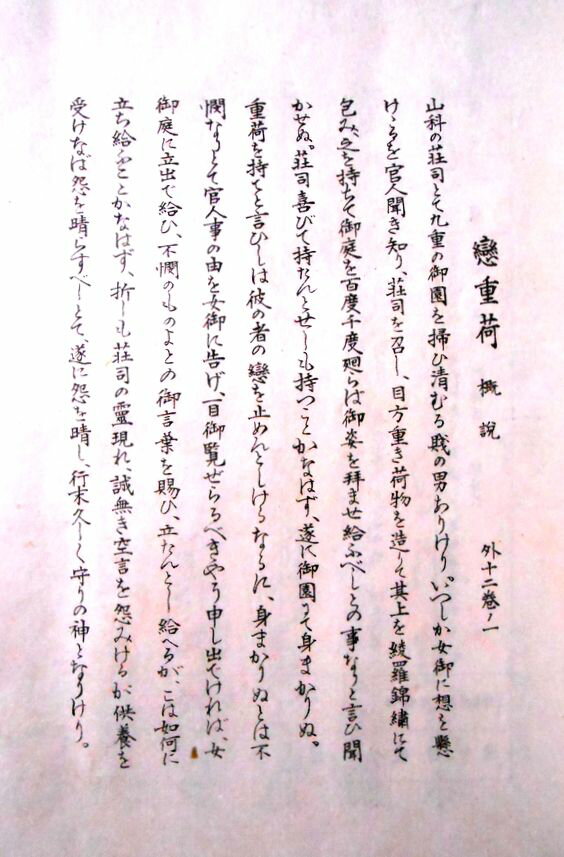 戀重荷 概說 外十二卷ノ一
山科の莊司とて九重の御園を掃ひ淸むる賎の男ありけり、いつしか女御に想を懸
けゝるを官人聞き知り、莊司を召し、目方重き荷物を造りて其上を綾羅錦繡にて
包み、之を持ちて御庭を百度千度廻らば御姿を拜ませ給ふべしとの事なりと言ひ聞
かせぬ。莊司喜びて持たんとせしも持つことかなはず、遂に御園にて身まかりぬ。
重荷を持てと言ひしは彼の者の戀を止めんとしけるなるに、身まかりぬとは不
憫なりとて官人事の由を女御に告げ、一目御覽ぜらるべきやう申し出でければ、女
御庭に立出で給ひ、不憫のものよとの御言葉を賜ひ、立たんとし給へるが、こは如何に
立ち給ふことかなはず、折しも莊司の靈現れ、誠無き空言を怨みけるが供養を
受けなば怨を晴らすべしとて、遂に怨を晴し、行末久しく守りの神となりけり。